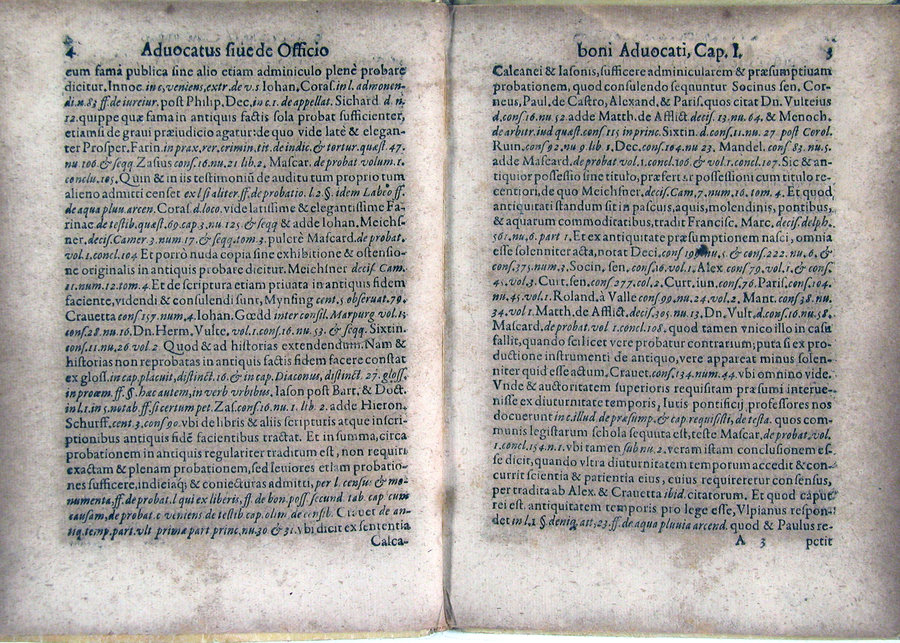 4 Aduocatus siue de Officio
eum famá publica sine alio etiam adminiculo plenè probare
dicitur, Innoc. in c, veniens, extr. de v. s Iohan, Coras. in l. admonen-
di. n. 83 ff. de iureiur. post Philip. Dec, in c. 1. de appellat. Sichard d. n.
12. quippe quæ fama in antiquis factis sola probat sufficienter,
etiamsi de graui præiudicio agatur: de quo vide latè & elegan-
ter Prosper. Farin. in prax. rer. crimin, tit. de indic. & tortur. quæst. 47.
nu. 106. & seqq Zasius cons. 16. nu. 21 lib. 2, Mascar. de probat volum. 1.
conclu. 105. Quin & in iis testimoniū de auditu tro proprium tum
alieno admitti censet ex l si aliter. ff, de probatio. l. 2 §. idem Labeo ff.
de aqua pluu. arcen. Coras. d. loco. vide latissime & elegantissime Fa-
rinac de testib. quæst. 69. cap. 3, nu 125, & seqq & adde Iohan. Meichs-
ner, decis. Camer. 3. num. 17. & seqq. tom 3. pulcrè Mascard. de probat.
vol. 1. concl. 104 Et porrò nuda copia sine exhibitione & ostensio-
ne originalis in antiquis probare dicitur. Meichsner decis Cam.
11. num. 12. tom. 4. Et de scriptura etiam priuata in antiquis fidem
faciente, videndi & consulendi sunt, Mynsing cent. 5 obseruat. 79.
Crauetta cons 157. num. 4. Iohan. Gœdd inter consil. Marpurg vol. 15
cons. 28. no. 16. Dn. Herm. Vulte, vol. 1. cons. 16. nu. 53. & seqq. Sixtin.
cons. 11. nu. 26 vol. 2 Quod & ad historias extendendum. Nam &
historias non reprobatas in antiquis factis fidem facere constat
ex gloss. in cap. placuit, distinct. 16. & in cap. Diaconus, distinct 27. gloss.
in proœm. ff §. hæc autem, in verb vrbibus. Iason post Bart. & Doct.
in l. 1. in 5. notab. ff. si certum pet. Zas. cons. 16. nu. 1. lib. 2. adde Hieron.
Schurff. cent. 3. cons 90. vbi de libris & aliis scripturis atque inscri-
ptionibus antiquis fidē facientibus tractat. Et in summa, circa
probationem in antiquis regulariter traditum est, non requiri
exactam & plenam probationem, sed leuiores etiam probatio-
nes sufficere, indiciaq; & coniecturas admitti, per l. census & mo-
numenta, ff. de probat. l qui ex liberis, ff. de bon. poss. secund. tab. cap cum
causam, de probat. c veniens de testib cap. olim de censib. Crauet de an-
tiq. temp. part. vlt prima part princ, nu. 30 & 31. vbi dicit ex sententia
Calca-
boni Aduocati, Cap. I. 5
Calcanei & Iasonis, sufficere adminicularem & præsumptiuam
probationem, quod consulendo sequntur Socinus sen, Cor-
neus, Paul. de Castro, Alexand, & Paris. quos citat Dn. Vulteius
d. cons. 16. nu 52. adde Matth. de Afflict. decis. 13. nu. 64. & Menoch.
de arbitr. iud quæst. cons 115 in princ. Sixtin. d. cons. 11. nu. 27 post Corol.
Ruin. cons 92. nu 9 lib. 1. Dec. cons. 104. nu 23. Mandel. cons 83. nu. 5.
adde Mascard. de probat vol. 1. concl. 106. & vol. 1. concl. 107. Sic & an-
tiquior possessio sine titulo, præfertur possessioni cum titulo re-
centiori, de quo Meichsner. decis. Cam. 7. num. 16. tom. 4. Et quod
antiquitati standum sit in pascuis, aquis, molendinis, pontibus,
& aquarum commoditatibus, tradit Francisc. Marc. decis. delph.
561. nu. 6. part 1. Et ex antiquitate præsumptionem nasci, omnia
esse solenniter acta, notat Deci. cons nu. 5 & cons. 222. nu. 6. &
cons. 375. num. 3. Socin, sen. cons. 16. vol. 1. Alex. cons 79. vol. 1. & cons.
45. vol. 3. Curt. sen. cons 277. col. 2. Curt. iun, cons. 76. Paris. cons. 104.
nu. 45. vol. 1. Roland. à Valle cons 99. nu. 24. vol. 2. Mant. cons. 38. nu.
34. vol 1. Matth. de Afflict. decis. 305. nu. 13. Dn. Vult. d. cons. 16. nu. 58.
Mascard. de probat. vol 1. concl. 108. quod tamen vnico illo in casu
fallit, quando scilicet vere probatur contrarium; puta si ex pro-
ductione instrumenti de antiquo, vere appareat minus solen-
niter quid esse actum, Crauet. cons. 134. num. 44. vbi omnino vide.
Vnde & auctoritatem superioris requisitam præsumi interue-
nisse ex diuturnitate temporis, Iutis pontificij professores nos
docuerunt in c. illud. de præsump. & cap. requisisti, de testa. quos com-
munis legistarum schola sequuta est, teste Mascar. de probat. vol.
1. concl. 154. n. 1. vbi tamen sub nu. 2. veram istam conclusionem es-
se dicit, quando vltra diuturnitatem temporum accedit & con-
currit scientia & patientia eius, cuius requireretur consensus,
per tradita ab Alex. & Crauetta ibid. citatorum. Et quod caput
rei est. antiquitatem temporis pro lege esse, Vlpianus respon-
det in l. 1 §. deniq. att, 23. ff. de aqua pluuia arcend. quod & Paulus re-
A 3 petit